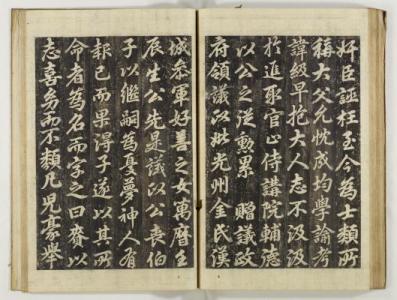 奸臣誣枉至今為士類所
稱大父允忱成均學諭考
諱級早抱大人志不汲汲
於進取官止侍講院輔德
以公之從勳累 贈議政
府領議政妣光州金氏漢
城參軍好善之女萬曆壬
辰生公先是議政公喪伯
子以繼嗣為憂夢神人有
報已而果得子遂以其所
命者為名而字之曰賚以
志喜幼而不類凡兒豪舉